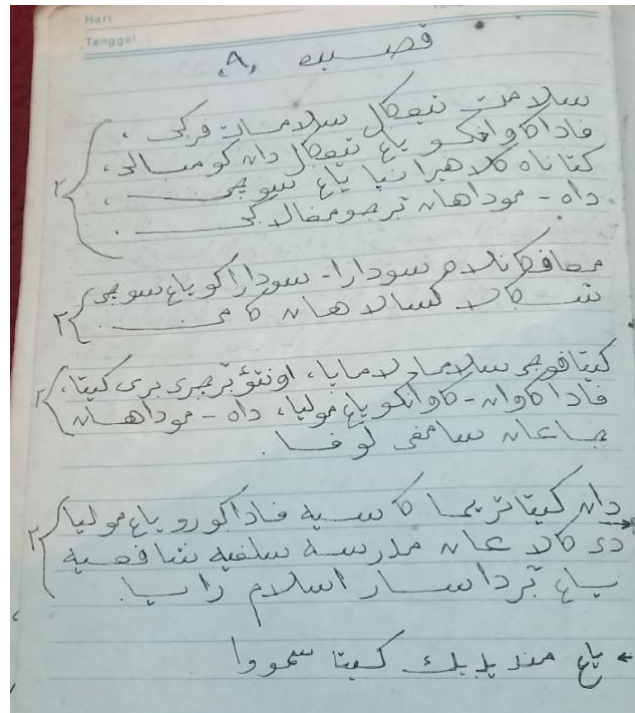 Hari
Tanggal :
قصيده A.
سلامت تيڠݢل سلامت فرݢي ،
فادا كاوانكو ياڠ تيڠݢل دان كومسالي،
كتاناه كلاهيرانيا ياڠ سوچي .
داه - موداهان برجومفا لاݢي .
معافكانلاه سودارا - سوداراكو ياڠ سوچي
سݢالا كسالاهان كامي .
كيتا فوجي سلاما لامايا، اونتوء برجري بري كيتا،
فادا كاوان - كاوانكو ياڠ موليا، داه - موداهان
جاڠان سامفي لوفا .
دان كيتا تريما كاسيه فادا ݢورو ياڠ موليا
دي كالاڠان مدرسه سلفيه شافعيه
ياڠ برداسار اسلام رايا .
ياڠ منديديك كيتا سمووا